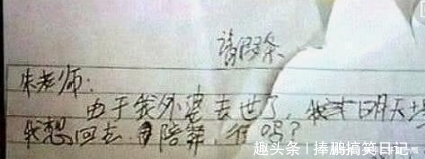 请假条
朱老师:
由于我外婆去世了,我明天
我想回去陪葬,行吗?
趣头条 | 捧鹏搞笑日记